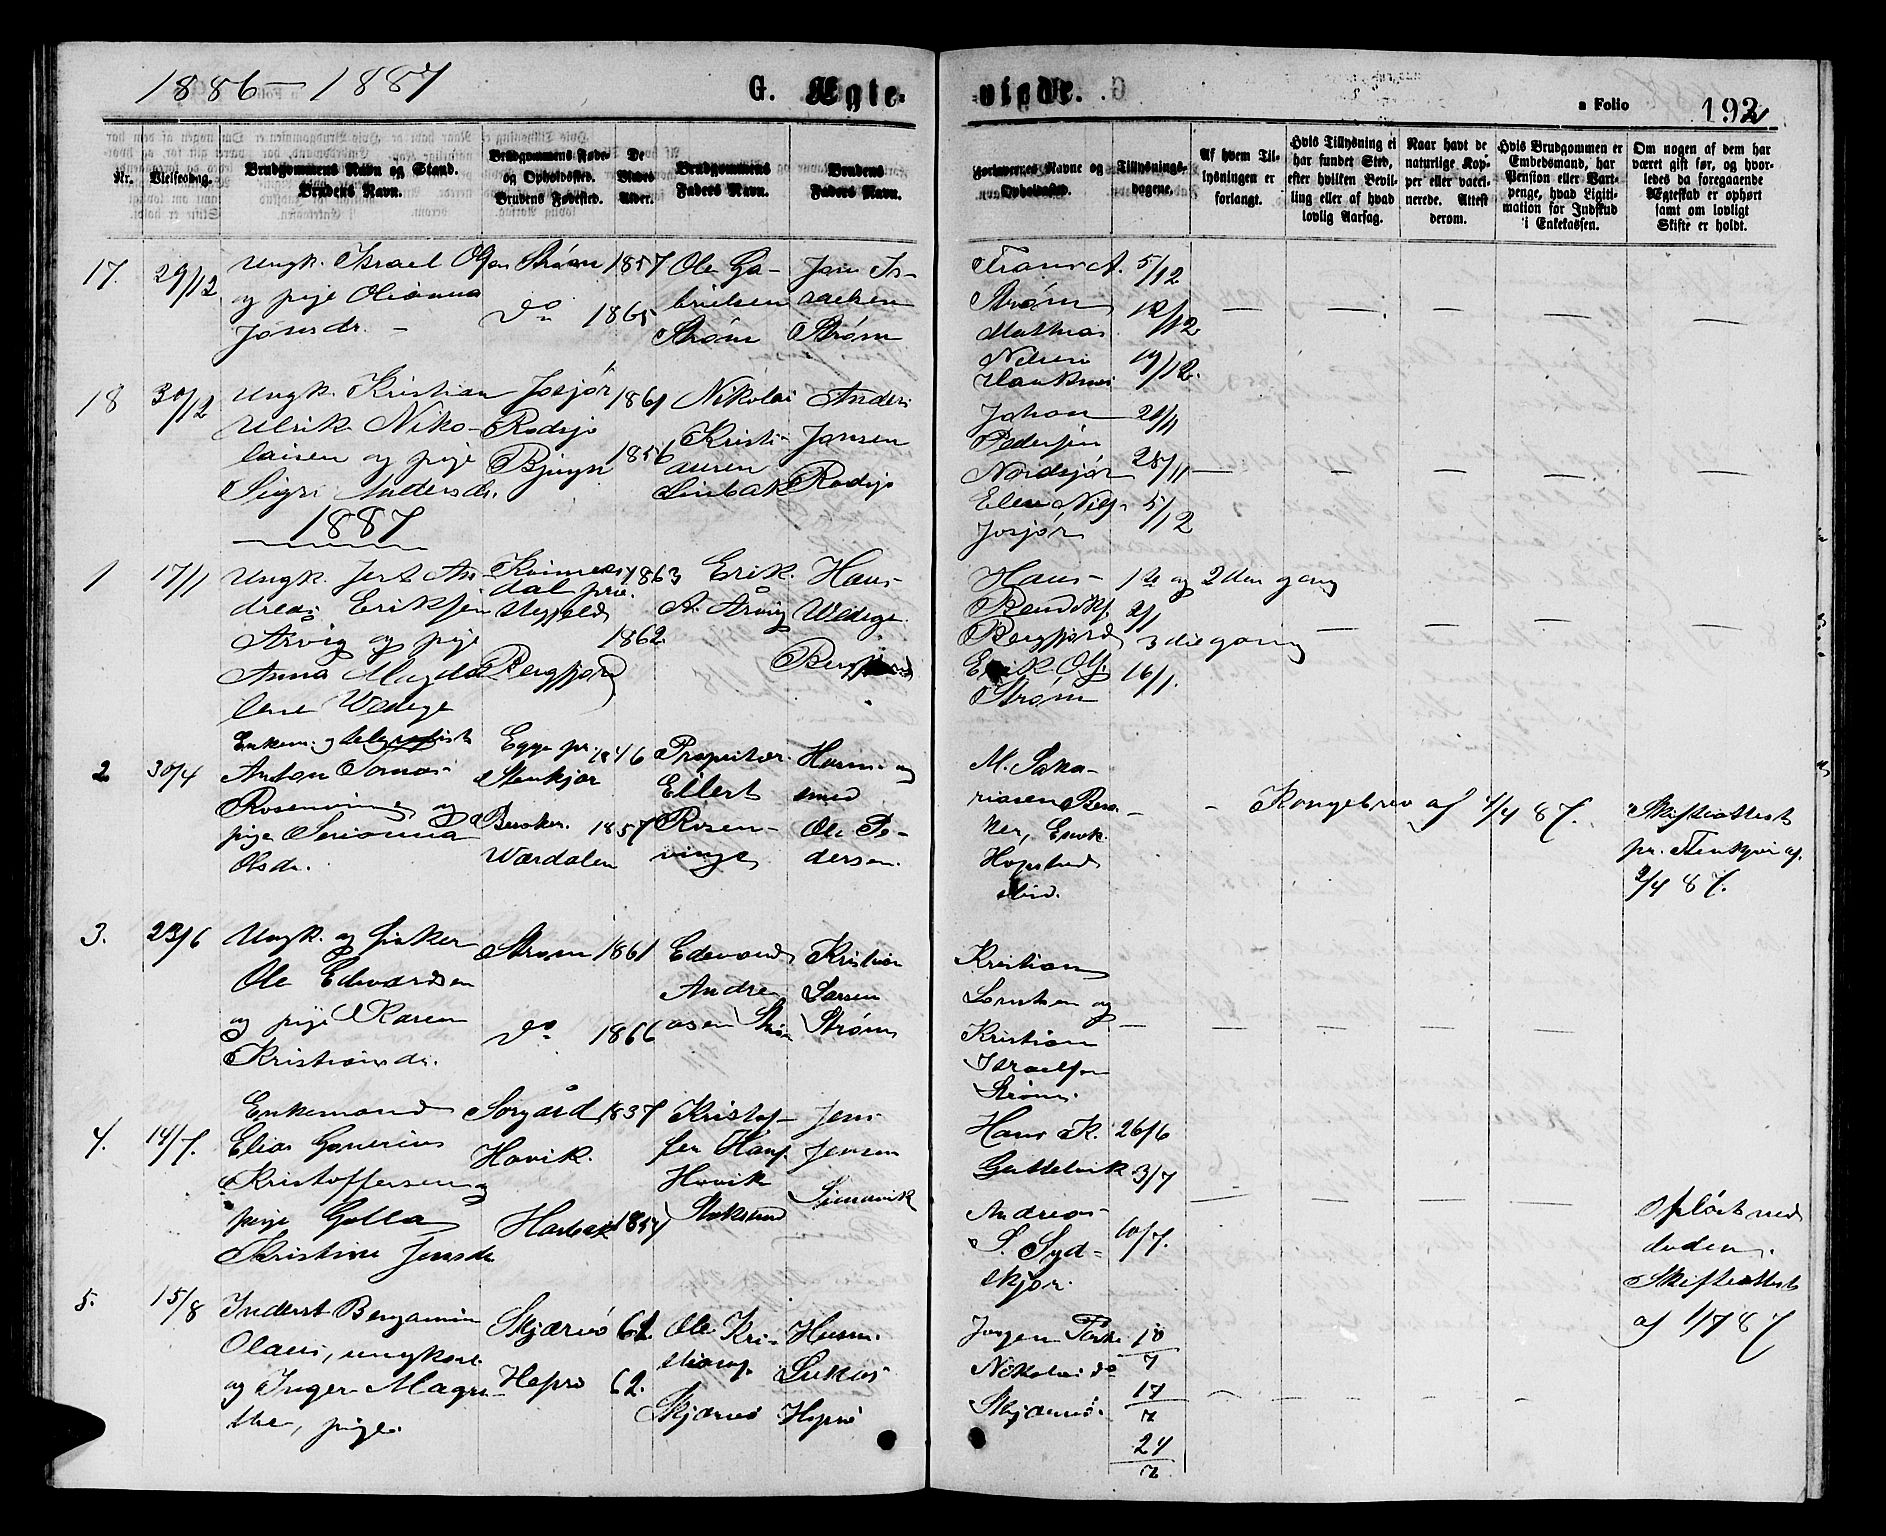 1886 – 1887
G. Ægte-
viede.
a Folio
192
Nr.
Vielsesdag.
Brudgommens Navn og Stand.
Brudens Navn.
Brudgommens Føde-
og Opholdssted.
Brudens Fødested.
De
Viedes
Alder.
Brudgommens
Faders Navn.
Brudens
Faders Navn.
Forlovernes Navne og
Opholdssted.
Tillysnings-
dagene.
Af hvem Til-
lysningen er
forlangt.
Hvis Tillysning ei
har fundet Sted,
efter hvilken Bevil-
ling eller af hvad
lovlig Aarsag.
Naar havt de
naturlige Kop-
per eller vacci-
nerede. Attest
derom.
Hvis Brudgommen er
Embedsmand, har
Pension eller Vart-
penge, hvad Ligiti-
mation for Indskud
i Enkekassen.
Om nogen af dem har
været gift før, og hvor-
ledes da foregaaende
Ægteskab er ophørt
samt om lovligt
Skifte er holdt.
17. 29/12
Ungk. Israel Olsen
og pige Olianna
Jonsdr. –
Strøm 1857
do 1865
Ole Ga-
brielsen
Strøm
Jon Is-
aachsen
Strøm
Frans A.
Strøm
Mathias
Nelsen
5/12
12/12
19/12.
18 30/12
Ungk. Kristian
Ulrik Niko-
laisen og pige
Sigri Andersdr.
Josjør
Rodsjø
Bjugn
1861
1856
Nikolai
Kristi-
ansen
Linbak
Anders
Jansen
Rodsjø
Johan
Pedersen
Nordsjør
Elen Nils.
Josjør
21/11
28/11
5/12
1887
1 17/1
Ungk. Jert An-
dreas Eriksen
Årvig og pige
Anna Magda
lene Wedege
Kvinnes
dal pr.
Bergfjord
1863
1862
Erik
A. Årvig
Hans
Wedege
Bergfjord
Hans
Bendiks.
Bergfjord
Erik Ols.
Strøm
1ste og 2den gang
2/1
3die gang
16/1.
2 30/4
Enkem. og telegrafist
Anton Tomas
Rosenvinge og
pige Serianna
Olsdr.
Egge pr.
Stenkjær
Værdalen
1846
1857
Proprietær
Ellert
Rosen-
vinge
Husm. og
smed
Ole Pe-
dersen.
M. Saka-
riasen
Hopstad
– Kongebrev af 4/4 87.
Skifteattest
pr. Stenkjær af
2/4 87.
3. 23/6
Ungk. og fisker
Ole Edvardsen
og pige Karen
Kristiansdr.
Strøm 1861
do 1866
Edevard
Andre
asen Strøm
Kristian
Larsen
Strøm
Kristian
Larsen og
Kristian
Israelsen
Strøm.
4. 14/7.
Enkemand
Elias Gonerius
Kristoffersen og
pige Golla
Kristine Jensdr
Sørgård
Hovik.
Harbak
1837
1854
Kristof-
fer Hans.
Hovik
Stoksund
Jens
Jensen
Simavik
Hans K.
Guttelvik
Andreas
S. Syd-
skjør.
26/6
3/7
10/7.
Opløst ved
døden.
Skifteattest
af 1/7 87
5. 15/8
Inderst Benjamin
Olaus, ungkarl
og Inger Magre-
the, pige.
Skjærvø 61
Hopsø 62.
Ole Kri-
stians.
Skjærvø
Husm.
Lukas
Hopsø
Jørgen
Nikolai do
Skjærvø.
10/7
17/7
24/7